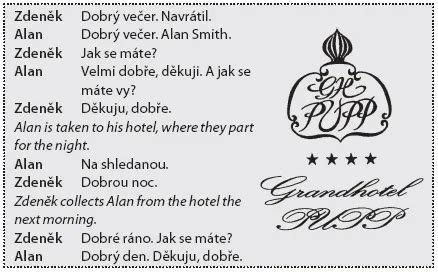 Zdeněk Dobrý večer. Navrátil.
Alan Dobrý večer. Alan Smith.
Zdeněk Jak se máte?
Alan Velmi dobře, děkuji. A jak se
máte vy?
Zdeněk Děkuju, dobře.
Alan is taken to his hotel, where they part
for the night.
Alan Na shledanou.
Zdeněk Dobrou noc.
Zdeněk collects Alan from the hotel the
next morning.
Zdeněk Dobré ráno. Jak se máte?
Alan Dobrý den. Děkuju, dobře.
GH
PUPP
Grandhotel
PUPP